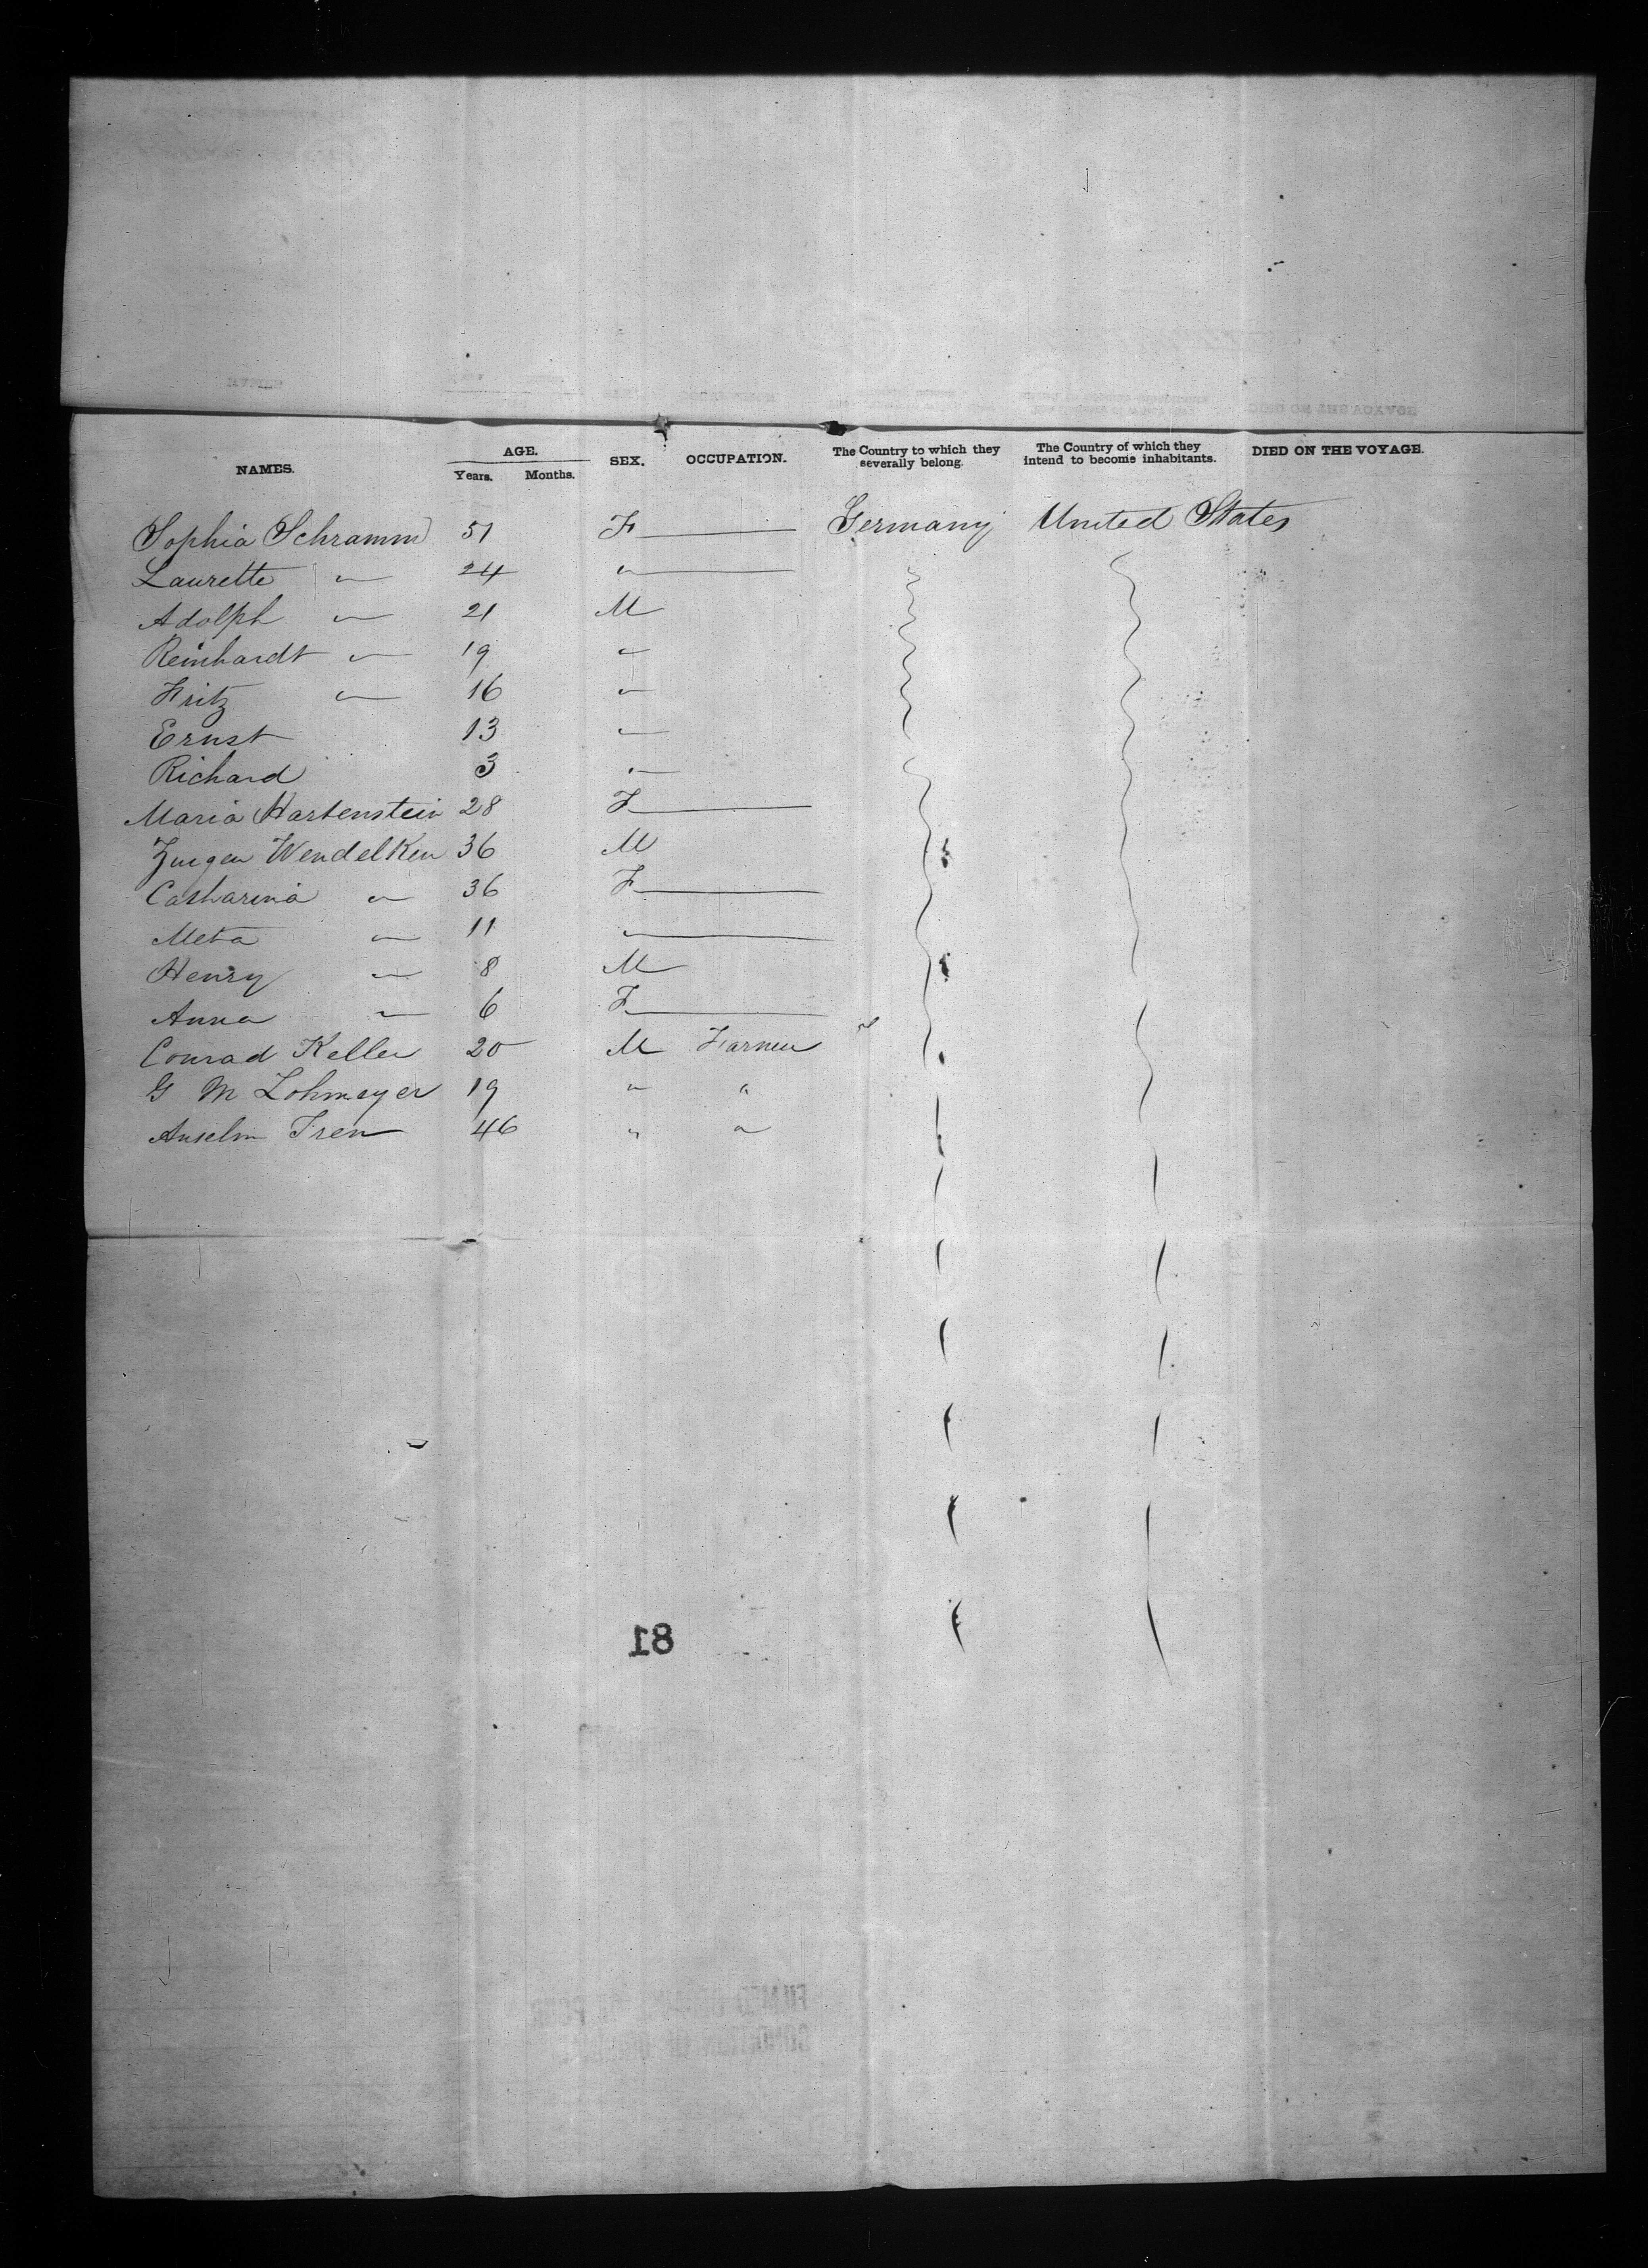 NAMES. AGE. Years. Months. SEX. OCCUPATION. The Country to which they severally belong. The Country of which they intend to become inhabitants. DIED ON THE VOYAGE.
Sophia Schramm 51 F Germany United States
Laurette " 24 "
Adolph " 21 M
Reinhardt " 19 "
Fritz " 16 "
Ernst 13 "
Richard 3 "
Maria Hartenstein 28 F
Wendelken 36 M
Catharina " 36 F
Meta " 11 "
Henry " 8 M
Anna " 6 F
Conrad Keller 20 M Farmer
G M Lohmeyer 19 " "
Anselm 46 " "
81